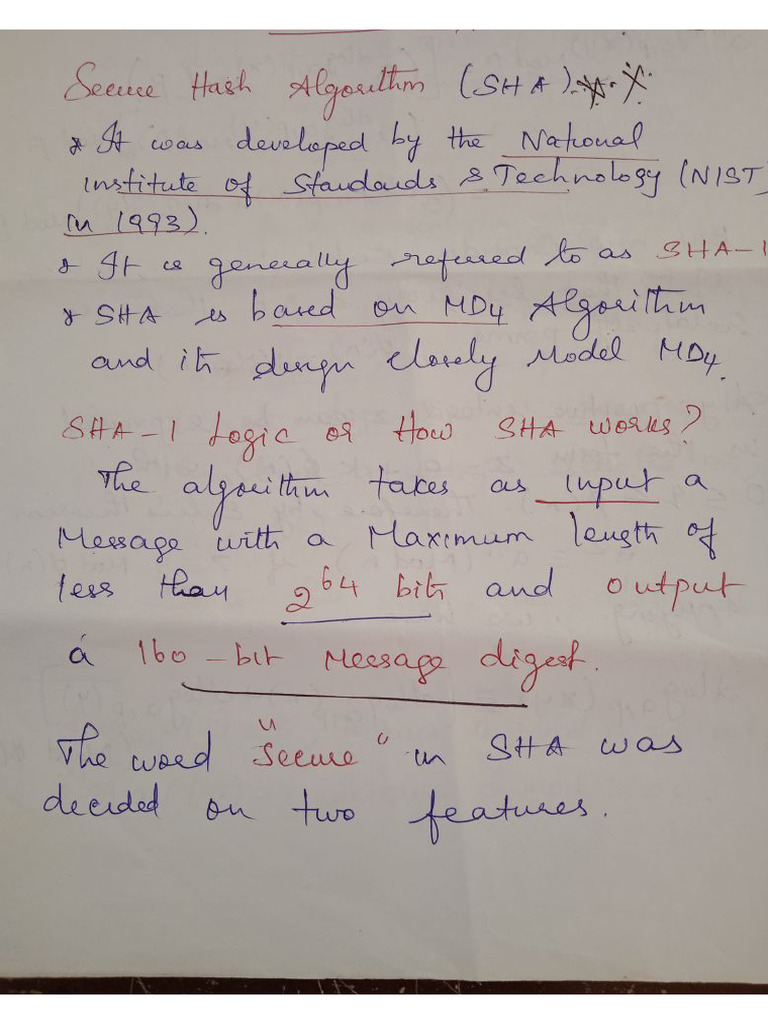 Secure Hash Algorithm (SHA)
* It was developed by the National
Institute of Standards & Technology (NIST)
in 1993).
* It is generally refused to as SHA-1
* SHA is based on MD4 Algorithm
and its design closely Model MD4.
SHA-1 Logic or How SHA works?
The algorithm takes as input a
Message with a Maximum length of
less than 2^64 bits and output
a 160-bit Message digest.
The word "Secure" in SHA was
decided on two features.